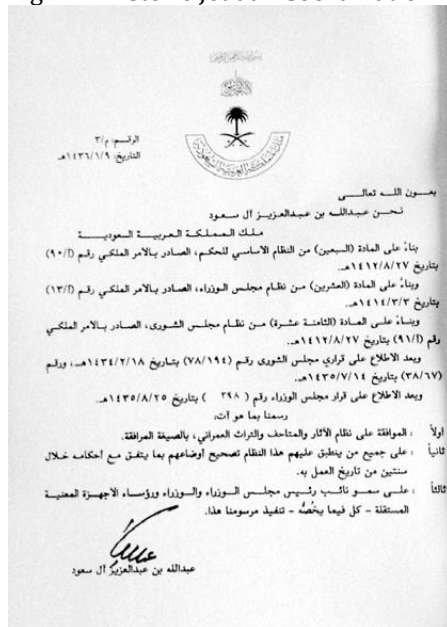 الرقم: م/٣
التاريخ: ١٤٣٦/١/٩هـ
بعون الله تعالى
نحن عبدالله بن عبدالعزيز آل سعود
ملك المملكة العربية السعودية
بناءً على المادة (السبعين) من النظام الأساسي للحكم، الصادر بالأمر الملكي رقم (أ/٩٠)
بتاريخ ١٤١٢/٨/٢٧هـ.
وبناءً على المادة (العشرين) من نظام مجلس الوزراء، الصادر بالأمر الملكي رقم (أ/١٣)
بتاريخ ١٤١٤/٣/٣هـ.
وبناءً على المادة (الثامنة عشرة) من نظام مجلس الشورى، الصادر بالأمر الملكي
رقم (أ/٩١) بتاريخ ١٤١٢/٨/٢٧هـ.
وبعد الاطلاع على قراري مجلس الشورى رقم (٧٨/١٩٤) بتاريخ ١٤٣٤/٢/١٨هـ، ورقم
(٣٨/٦٧) بتاريخ ١٤٣٥/٧/١٤هـ.
وبعد الاطلاع على قرار مجلس الوزراء رقم ( ٣٩٨ ) بتاريخ ١٤٣٥/٨/٢٥هـ.
رسمنا بما هو آت:
أولاً : الموافقة على نظام الآثار والمتاحف والتراث العمراني، بالصيغة المرافقة.
ثانياً : على جميع من ينطبق عليهم هذا النظام تصحيح أوضاعهم بما يتفق مع أحكامه خلال
سنتين من تاريخ العمل به.
ثالثاً : على سمو نائب رئيس مجلس الوزراء والوزراء ورؤساء الأجهزة المعنية
المستقلة - كل فيما يخصُّه - تنفيذ مرسومنا هذا.
عبدالله بن عبدالعزيز آل سعود